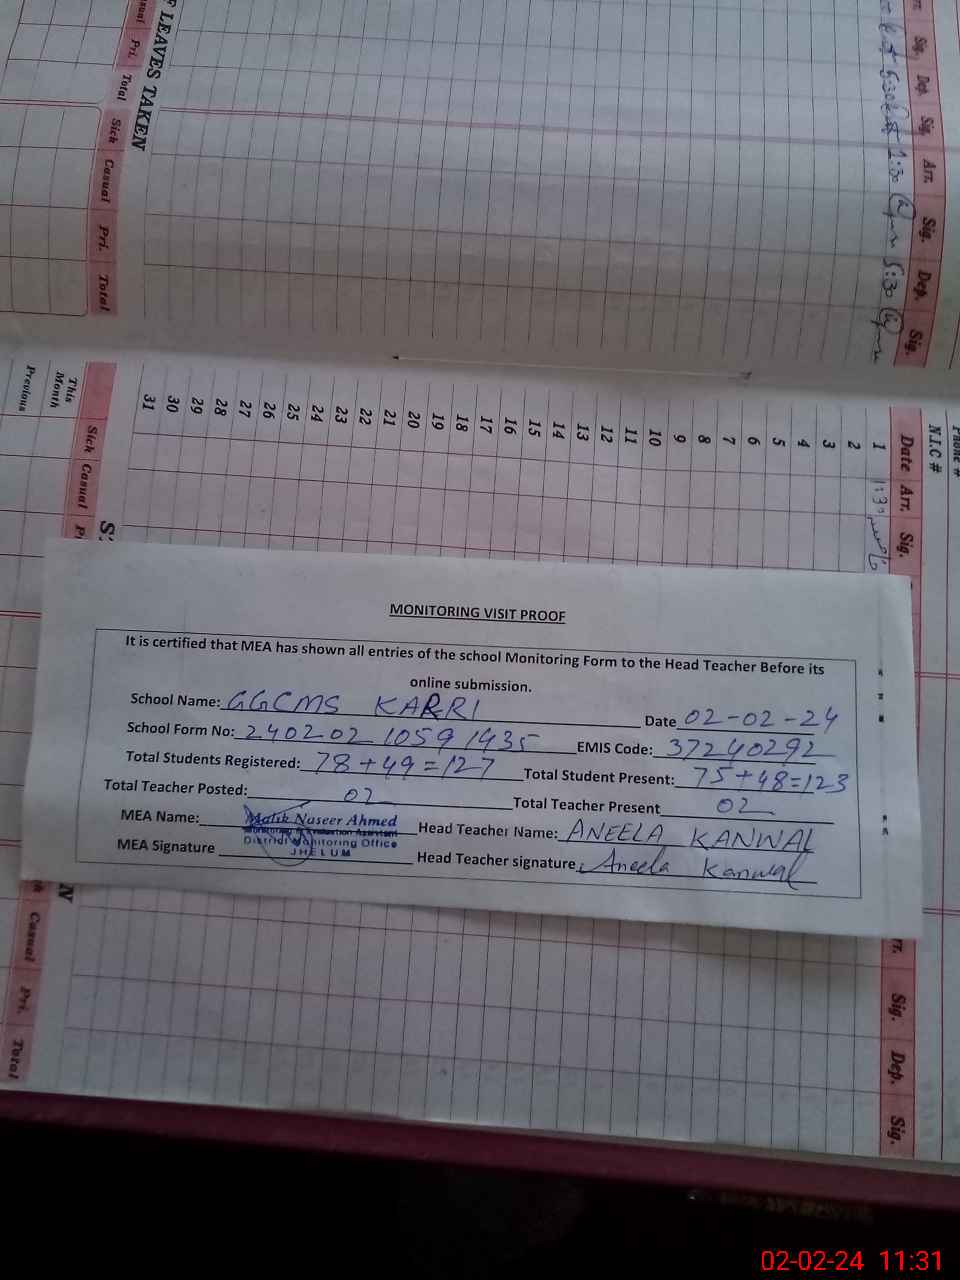 MONITORING VISIT PROOF
It is certified that MEA has shown all entries of the school Monitoring Form to the Head Teacher Before its
online submission.
School Name: GGCMS KARRI Date 02-02-24
School Form No: 240202 1059 1435 EMIS Code: 37240292
Total Students Registered: 78+49=127 Total Student Present: 75+48=123
Total Teacher Posted: 02 Total Teacher Present 02
MEA Name: Malik Naseer Ahmed Head Teacher Name: ANEELA KANWAL
Monitoring & Evaluation Assistant
District Monitoring Office
JHELUM
MEA Signature Head Teacher signature: Aneela Kanwal
LEAVES TAKEN
Pri. Total Sick Casual Pri. Total
Sig. Dep. Sig. Arr. Sig. Dep. Sig.
5:30 1:30 5:30
Phone #
N.I.C #
Date Arr. Sig.
1 1:30
2
3
4
5
6
7
8
9
10
11
12
13
14
15
16
17
18
19
20
21
22
23
24
25
26
27
28
29
30
31
Sick Casual
This Month
Previous
Sig. Dep. Sig.
Casual Pri. Total
02-02-24 11:31